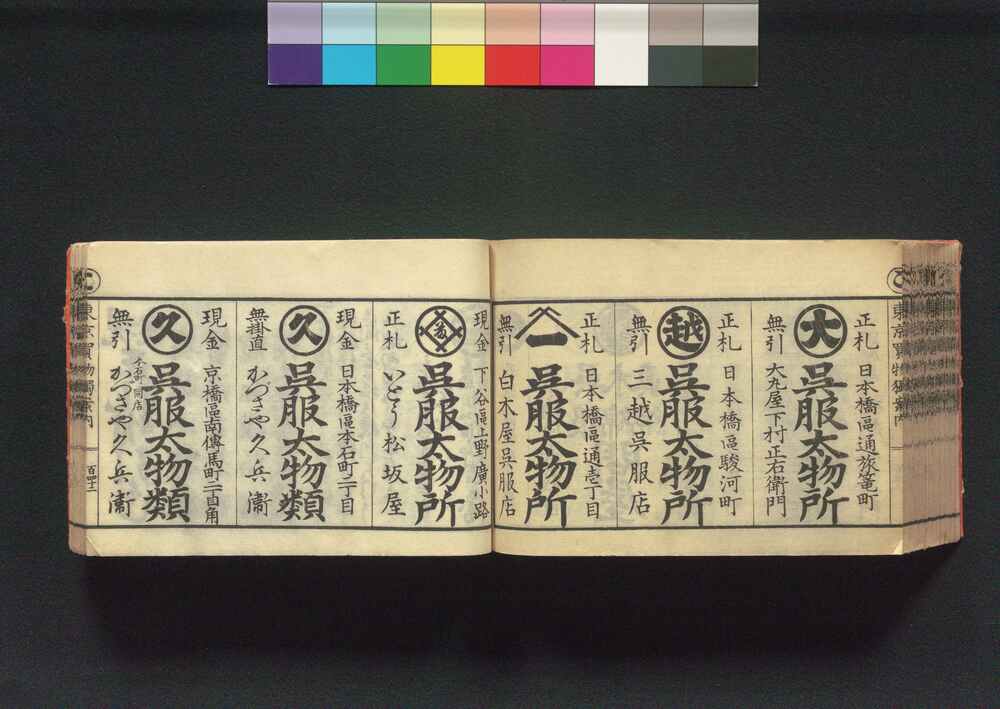 正札
日本橋區通旅篭町
大
呉服太物所
無引
大丸屋下村正右衛門
正札
日本橋區駿河町
越
呉服太物所
無引
三越呉服店
正札
日本橋區通壱丁目
一
呉服太物所
無引
白木屋呉服店
現金
下谷區上野廣小路
呉服太物所
正札
いとう松坂屋
現金
日本橋區本石町二丁目
久
呉服太物類
無掛直
かづさや久兵衞
現金
京橋區南傳馬町二丁目角
久
呉服太物類
無引
本石町同店
かづさや久兵衞
東京買物獨案内
百四十二